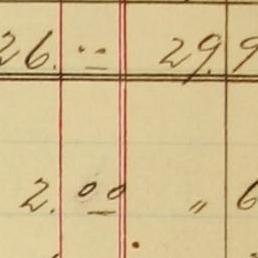 26. " 29.9
2. 00 " 6